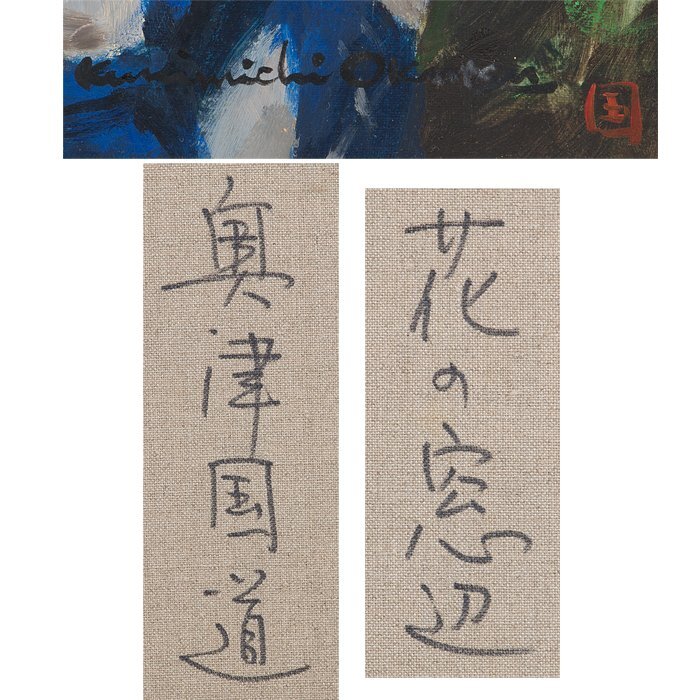 Kunimichi Okutsu
国
奥津国道
花の窓辺